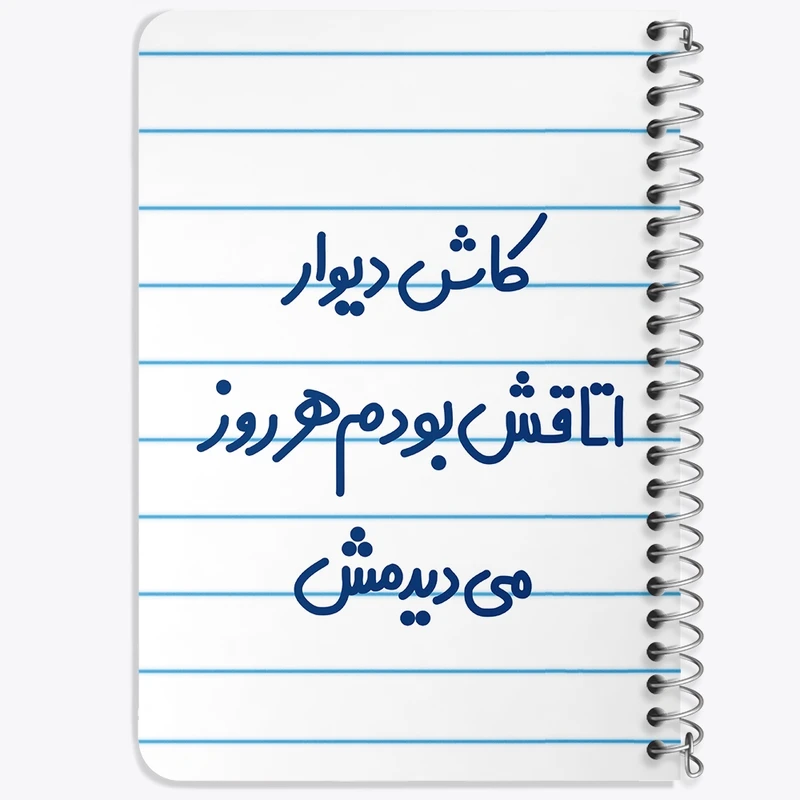 کاش دیوار
اتاقش بودم هر روز
می دیدمش